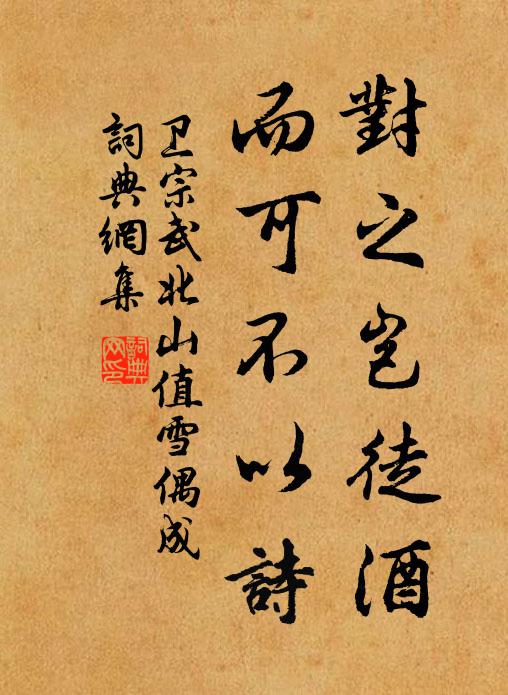 對之豈徒酒
而可不以詩
卫宗武北山值雪偶成
詞典網集
詞典網印